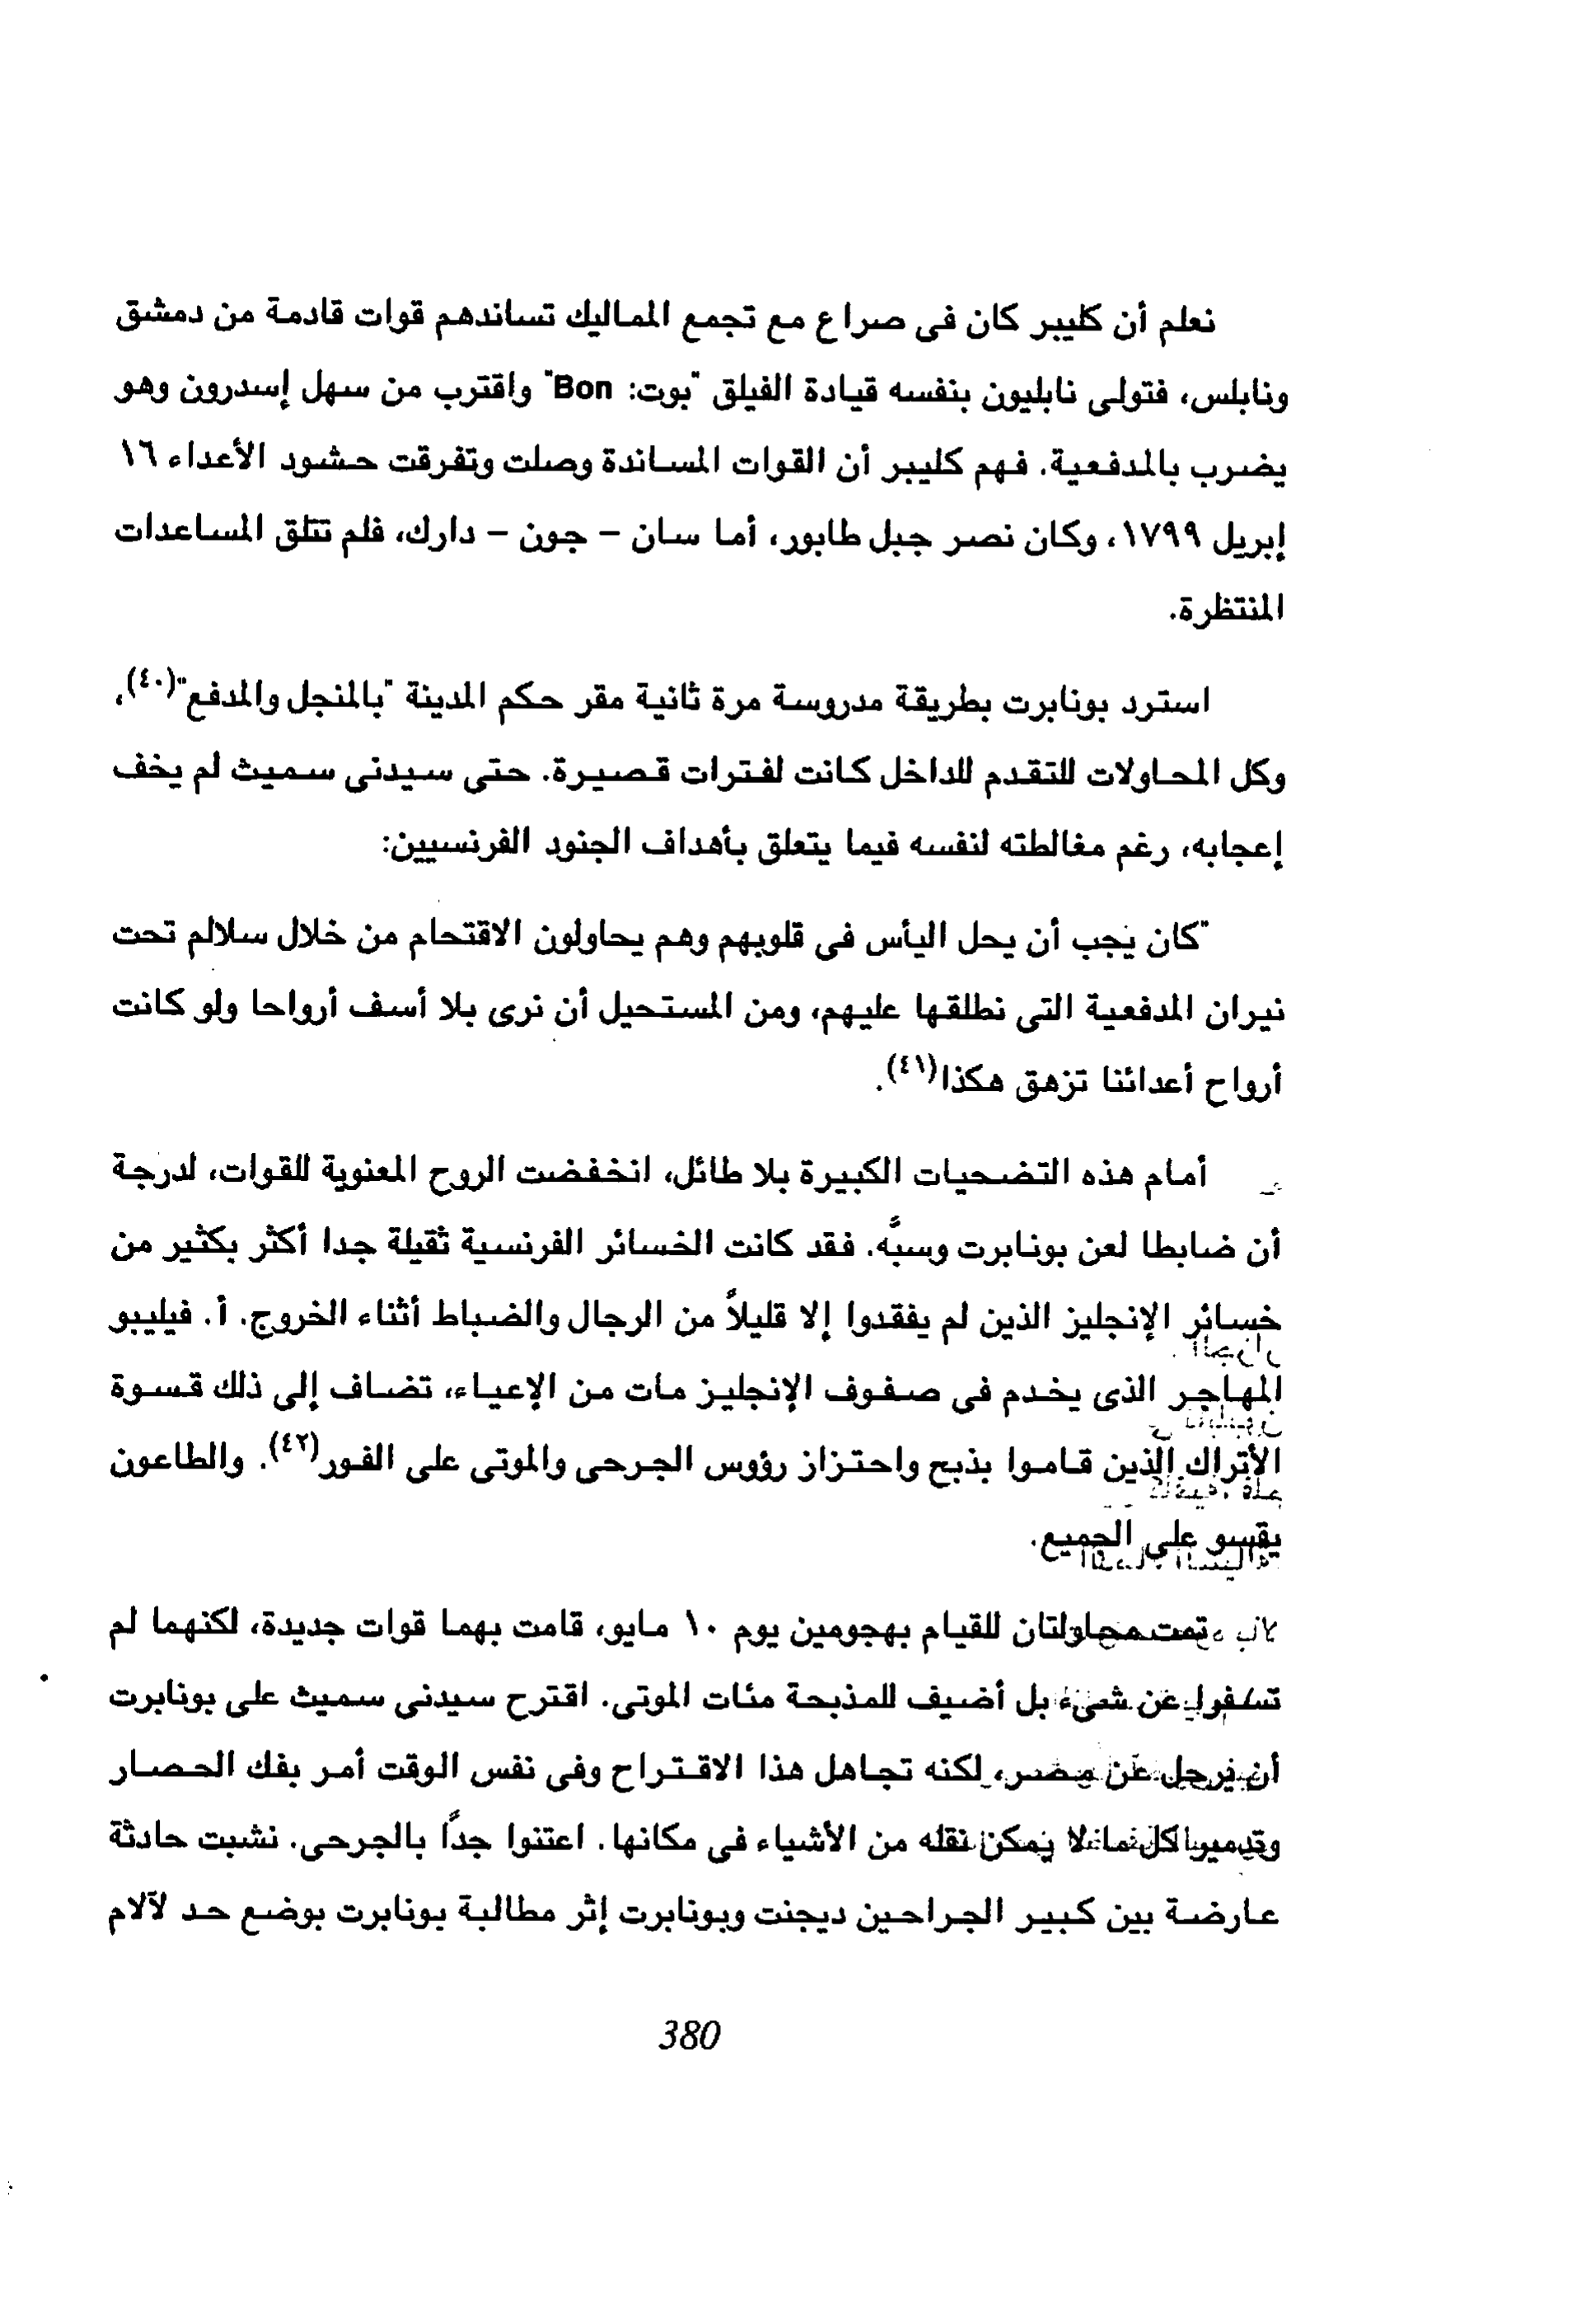 نعلم أن كليبر كان فى صراع مع تجمع المماليك تساندهم قوات قادمة من دمشق
ونابلس، فتولى نابليون بنفسه قيادة الفيلق "بوت: Bon" واقترب من سهل إسدرون وهو
يضرب بالمدفعية. فهم كليبر أن القوات المساندة وصلت وتفرقت حشود الأعداء ١٦
إبريل ١٧٩٩، وكان نصر جبل طابور، أما سان – جون – دارك، فلم تتلق المساعدات
المنتظرة.
استرد بونابرت بطريقة مدروسة مرة ثانية مقر حكم المدينة "بالمنجل والمدفع"(٤٠)،
وكل المحاولات للتقدم للداخل كانت لفترات قصيرة. حتى سيدنى سميث لم يخف
إعجابه، رغم مغالطته لنفسه فيما يتعلق بأهداف الجنود الفرنسيين:
"كان يجب أن يحل اليأس فى قلوبهم وهم يحاولون الاقتحام من خلال سلالم تحت
نيران المدفعية التى نطلقها عليهم، ومن المستحيل أن نرى بلا أسف أرواحا ولو كانت
أرواح أعدائنا تزهق هكذا(٤١).
أمام هذه التضحيات الكبيرة بلا طائل، انخفضت الروح المعنوية للقوات، لدرجة
أن ضابطا لعن بونابرت وسبَّه. فقد كانت الخسائر الفرنسية ثقيلة جدا أكثر بكثير من
خسائر الإنجليز الذين لم يفقدوا إلا قليلاً من الرجال والضباط أثناء الخروج. أ. فيليبو
المهاجر الذى يخدم فى صفوف الإنجليز مات من الإعياء، تضاف إلى ذلك قسوة
الأتراك الذين قاموا بذبح واحتزاز رؤوس الجرحى والموتى على الفور(٤٢). والطاعون
يقسو على الجميع.
تمت محاولتان للقيام بهجومين يوم ١٠ مايو، قامت بهما قوات جديدة، لكنهما لم
تسفرا عن شىء بل أضيف للمذبحة مئات الموتى. اقترح سيدنى سميث على بونابرت
أن يرحل عن مصر، لكنه تجاهل هذا الاقتراح وفى نفس الوقت أمر بفك الحصار
وتدمير كل ما لا يمكن نقله من الأشياء فى مكانها. اعتنوا جدًا بالجرحى. نشبت حادثة
عارضة بين كبير الجراحين ديجنت وبونابرت إثر مطالبة بونابرت بوضع حد لآلام
380